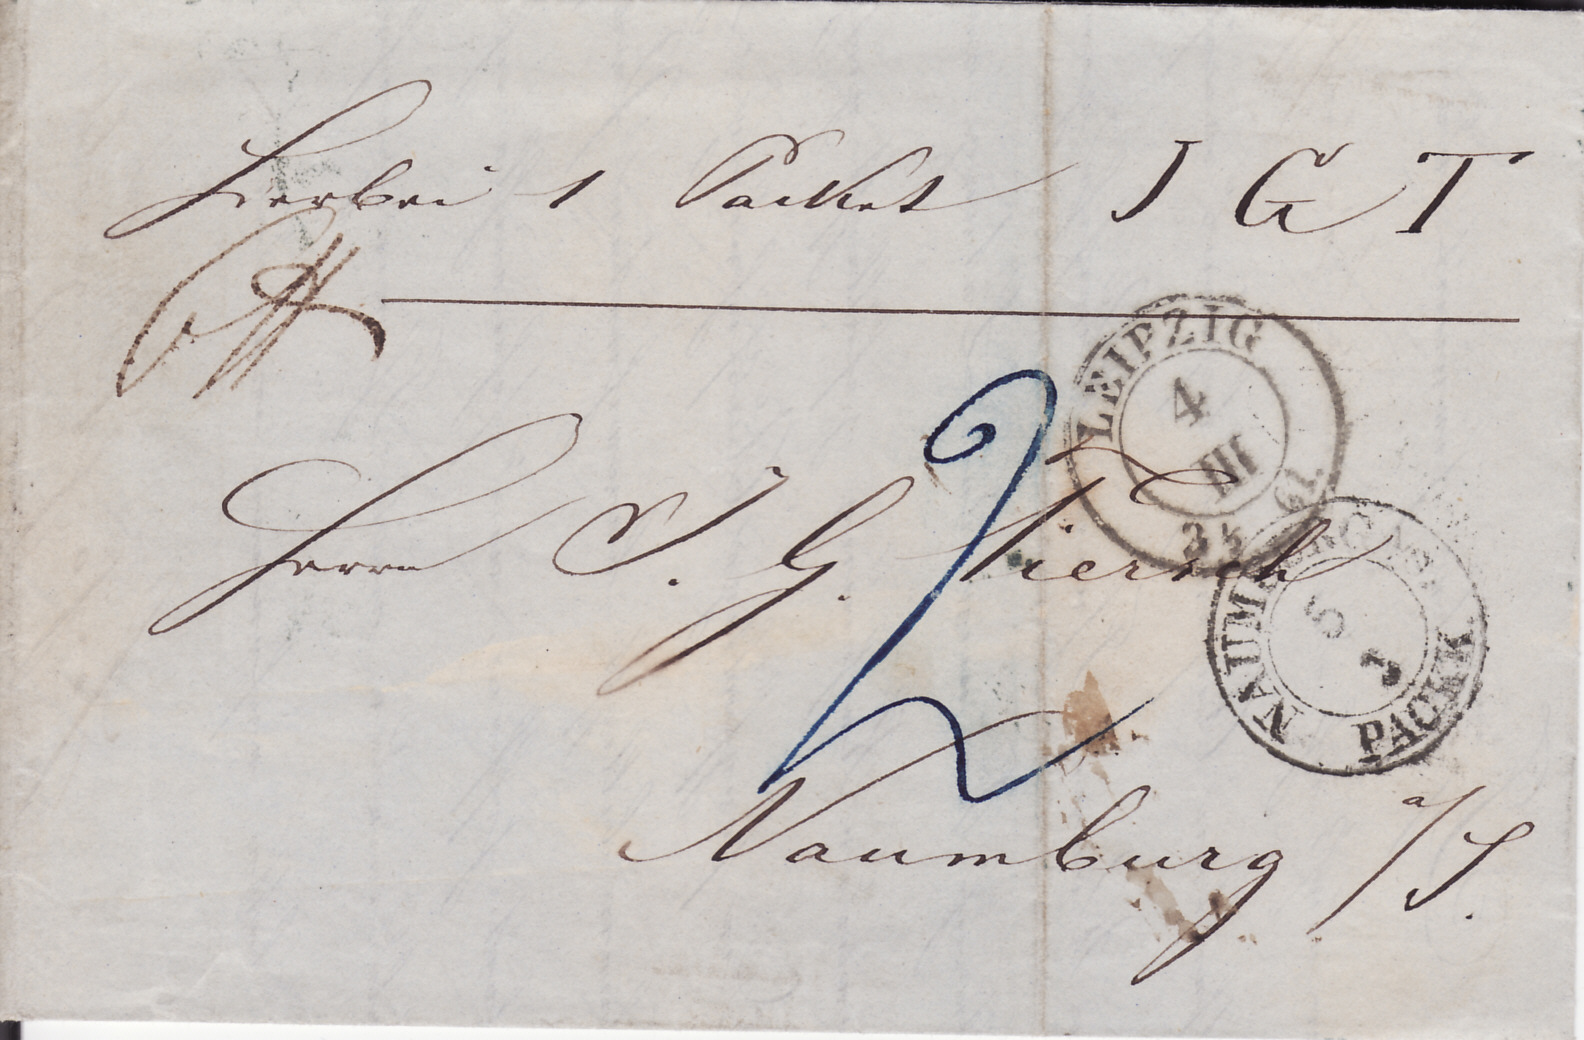 Hierbei 1 Packet J G T
LEIPZIG
4
III
61
Herrn J. G. Tiersch
2
NAUMBURG A/S.
5
3
PACKK
Naumburg a/S.